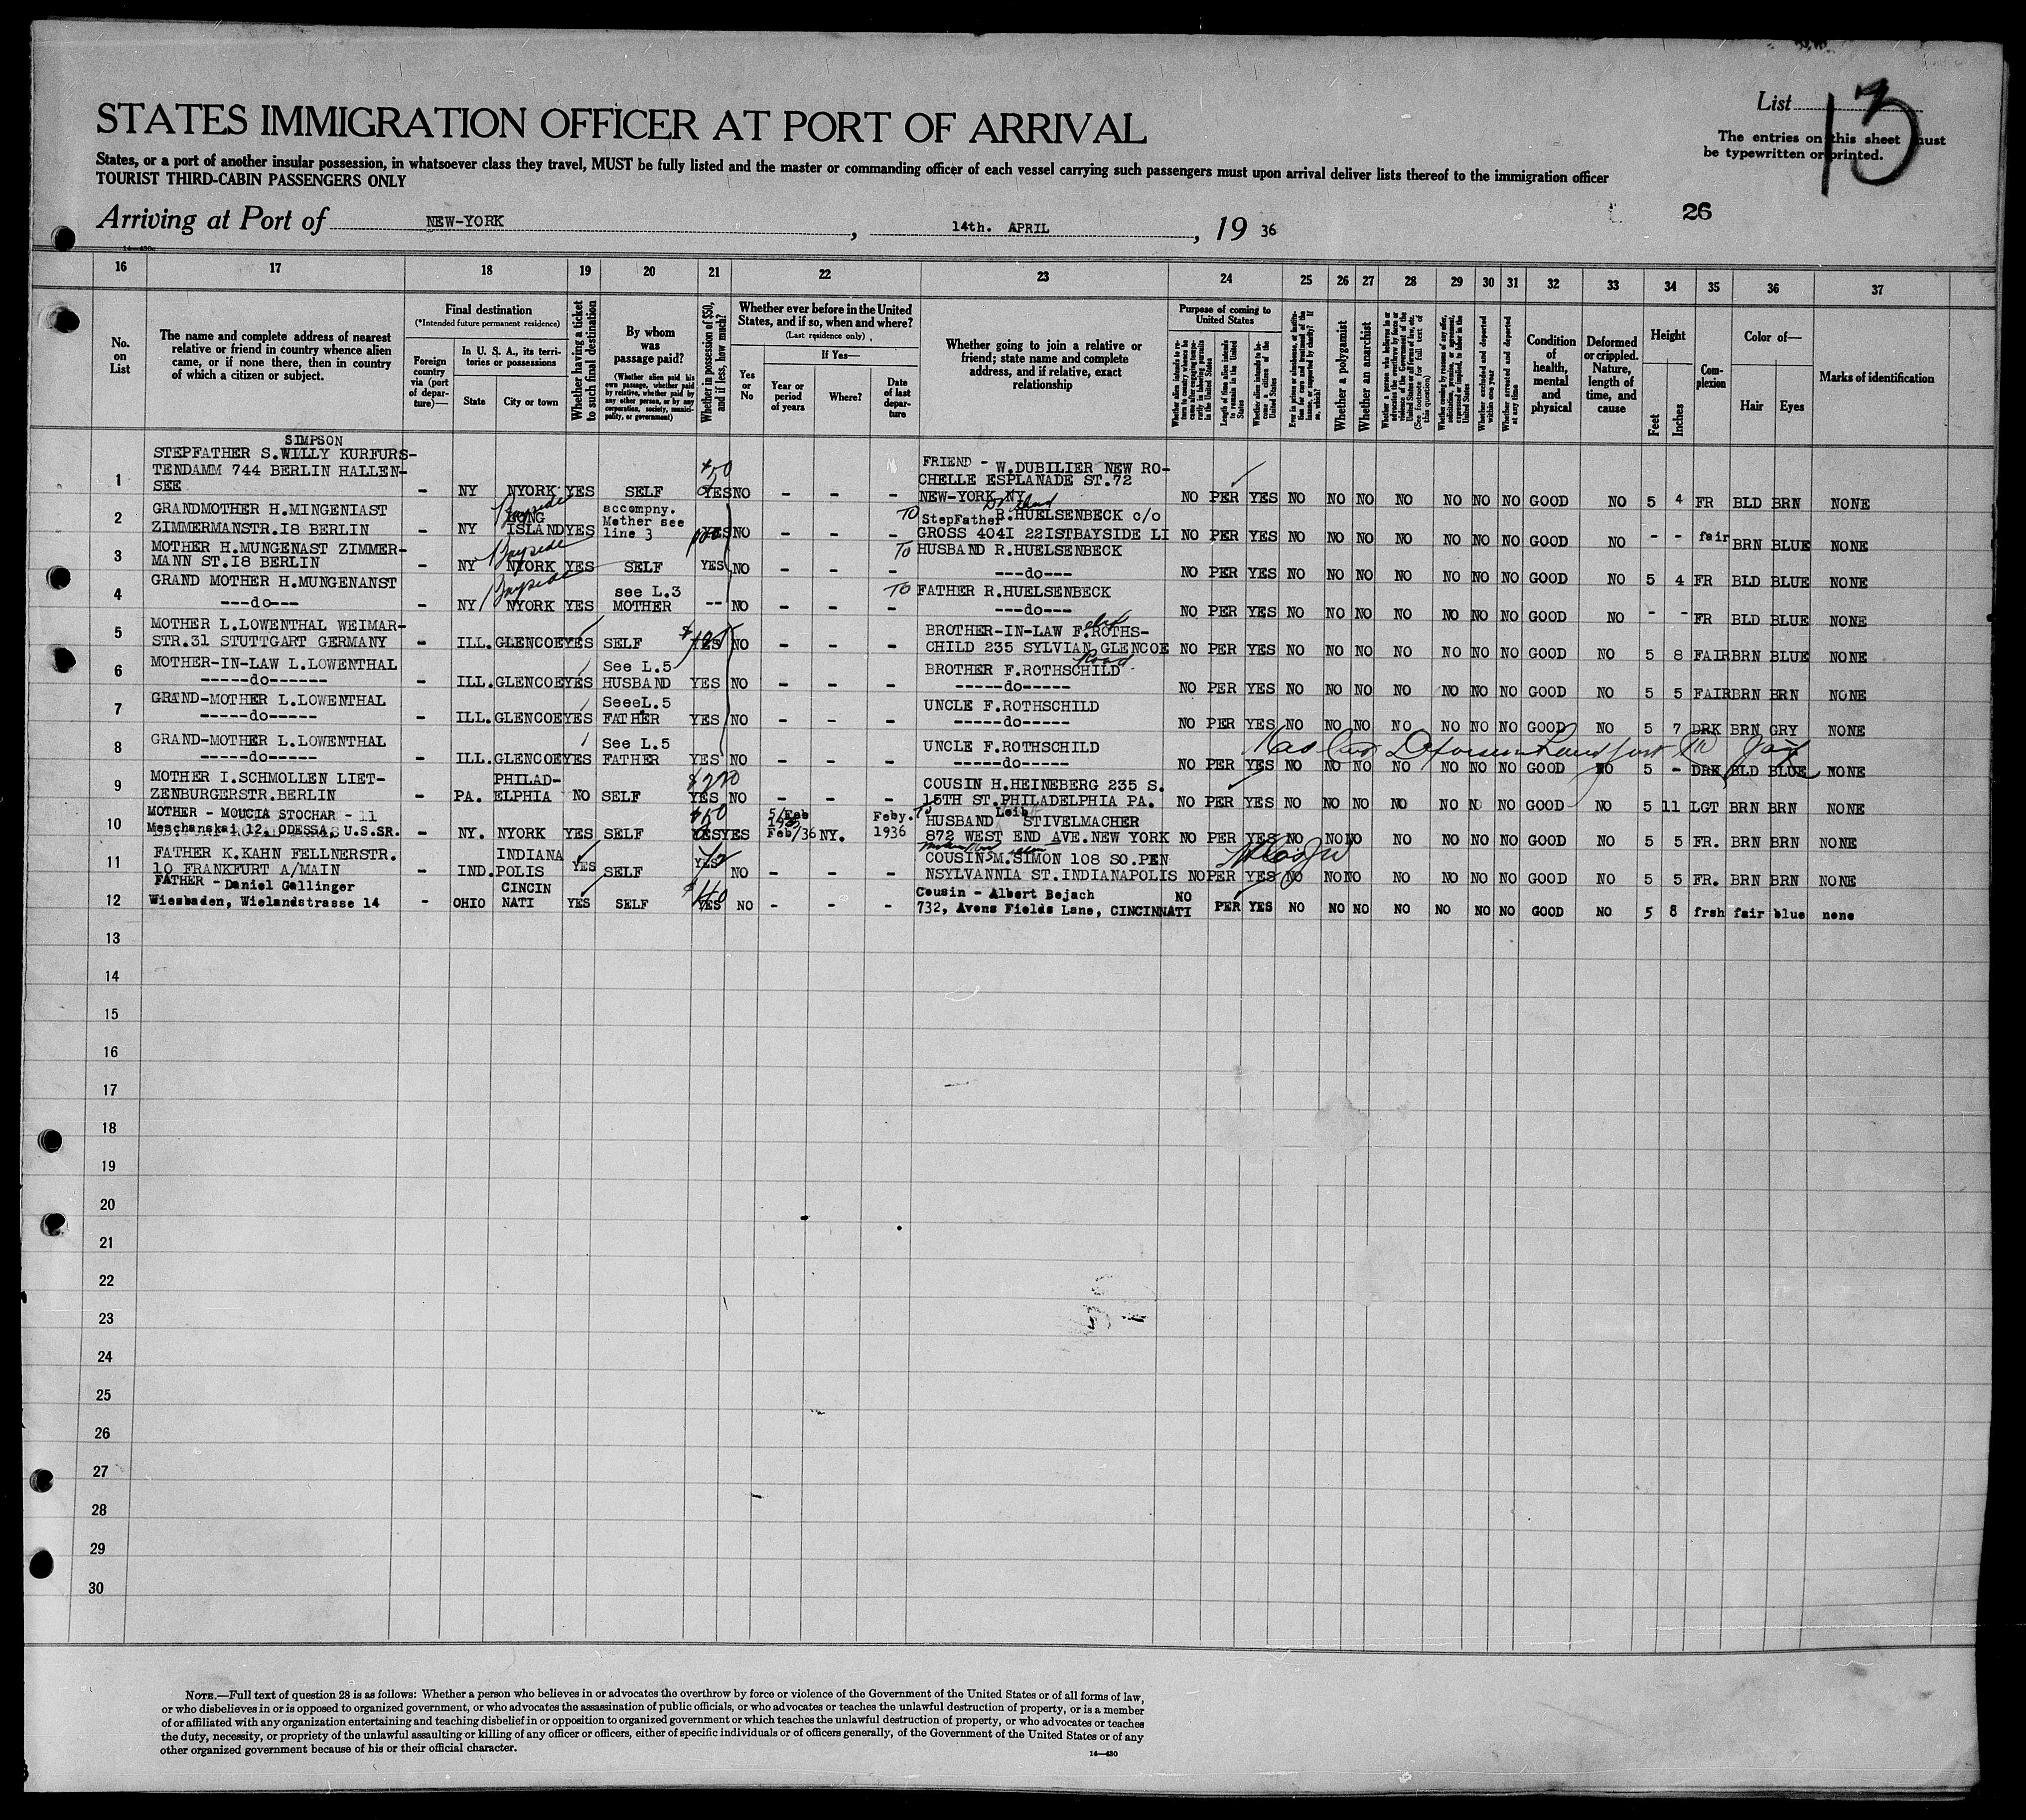 List 13
STATES IMMIGRATION OFFICER AT PORT OF ARRIVAL
The entries on this sheet must
be typewritten or printed.
States, or a port of another insular possession, in whatsoever class they travel, MUST be fully listed and the master or commanding officer of each vessel carrying such passengers must upon arrival deliver lists thereof to the immigration officer
TOURIST THIRD-CABIN PASSENGERS ONLY
26
Arriving at Port of NEW-YORK, 14th. APRIL, 19 36
14—430c
16 17 18 19 20 21 22 23 24 25 26 27 28 29 30 31 32 33 34 35 36 37
No. on List
The name and complete address of nearest relative or friend in country whence alien came, or if none there, then in country of which a citizen or subject.
Final destination
(*Intended future permanent residence)
Foreign country via (port of departure)—
In U. S. A., its territories or possessions
State
City or town
Whether having a ticket to such final destination
By whom was passage paid?
(Whether alien paid his own passage, whether paid by relative, whether paid by any other person, or by any corporation, society, municipality, or government)
Whether in possession of $50, and if less, how much?
Whether ever before in the United States, and if so, when and where?
(Last residence only)
Yes or No
If Yes—
Year or period of years
Where?
Date of last departure
Whether going to join a relative or friend; state name and complete address, and if relative, exact relationship
Purpose of coming to United States
Length of time alien intends to remain in the United States
Whether alien intends to become a citizen of the United States
Whether a polygamist
Whether an anarchist
(See footnote for full text of this question)
Whether excluded and deported within one year
Whether arrested and deported at any time
Condition of health, mental and physical
Deformed or crippled. Nature, length of time, and cause
Height
Feet
Inches
Complexion
Color of—
Hair
Eyes
Marks of identification
SIMPSON
STEPFATHER S.WILLY KURFURS-
TENDAMM 744 BERLIN HALLEN- $50 FRIEND - W.DUBILIER NEW RO-
CHELLE ESPLANADE ST.72
1 SEE - NY NYORK YES SELF YES NO - - - NEW-YORK NY NO PER YES NO NO NO NO NO NO NO GOOD NO 5 4 FR BLD BRN NONE
GRANDMOTHER H.MINGENIAST Bayside LONG accompny. Mother see TO StepFather R.HUELSENBECK c/o
2 ZIMMERMANSTR.18 BERLIN - NY ISLAND YES line 3 YES NO - - - GROSS 4041 221STBAYSIDE LI NO PER YES NO NO NO NO NO NO NO GOOD NO - - fair BRN BLUE NONE
MOTHER H.MUNGENAST ZIMMER- Bayside To HUSBAND R.HUELSENBECK
3 MANN ST.18 BERLIN - NY NYORK YES SELF YES NO - - - ---do--- NO PER YES NO NO NO NO NO NO NO GOOD NO 5 4 FR BLD BLUE NONE
GRAND MOTHER H.MUNGENANST Bayside see L.3 TO FATHER R.HUELSENBECK
4 ---do--- - NY NYORK YES MOTHER -- NO - - - ---do--- NO PER YES NO NO NO NO NO NO NO GOOD NO - - FR BLD BLUE NONE
MOTHER L.LOWENTHAL WEIMAR- BROTHER-IN-LAW F.ROTHS-
5 STR.31 STUTTGART GERMANY - ILL. GLENCOE YES SELF YES NO - - - CHILD 235 SYLVIAN GLENCOE NO PER YES NO NO NO NO NO NO NO GOOD NO 5 8 FAIR BRN BLUE NONE
Road
MOTHER-IN-LAW L.LOWENTHAL See L.5 BROTHER F.ROTHSCHILD
6 -----do------ - ILL. GLENCOE YES HUSBAND YES NO - - - -----do----- NO PER YES NO NO NO NO NO NO NO GOOD NO 5 5 FAIR BRN BRN NONE
GRAND-MOTHER L.LOWENTHAL SeeeL.5 UNCLE F.ROTHSCHILD
7 -----do----- - ILL. GLENCOE YES FATHER YES NO - - - -----do----- NO PER YES NO NO NO NO NO NO NO GOOD NO 5 7 DRK BRN GRY NONE
GRAND-MOTHER L.LOWENTHAL See L.5 UNCLE F.ROTHSCHILD
8 -----do----- - ILL. GLENCOE YES FATHER YES NO - - - -----do----- NO PER YES NO NO NO NO NO NO NO GOOD NO 5 - DRK BLD BLUE NONE
MOTHER I.SCHMOLLEN LIET- PHILAD- COUSIN H.HEINEBERG 235 S.
9 ZENBURGERSTR.BERLIN - PA. ELPHIA NO SELF YES NO - - - 15TH ST.PHILADELPHIA PA. NO PER YES NO NO NO NO NO N NO GOOD NO 5 11 LGT BRN BRN NONE
MOTHER - MOUCIA STOCHAR - 11 $50 Feby. To HUSBAND Leib STIVELMACHER
10 Meschanskai 12. ODESSA, U.S.SR. - NY. NYORK YES SELF YES YES Feb/36 NY. 1936 872 WEST END AVE.NEW YORK NO PER YES NO NO NO NO NO NO NO GOOD NO 5 5 FR. BRN BRN NONE
FATHER K.KAHN FELLNERSTR. INDIANA COUSIN M.SIMON 108 SO.PEN
11 10 FRANKFURT A/MAIN - IND. POLIS YES SELF YES NO - - - NSYLVANNIA ST.INDIANAPOLIS NO PER YES NO NO NO NO NO NO NO GOOD NO 5 5 FR. BRN BRN NONE
FATHER - Daniel Gallinger CINCIN $40 Cousin - Albert Bejach
12 Wiesbaden, Wielandstrasse 14 - OHIO NATI YES SELF YES NO - - - 732, Avens Fields Lane, CINCINNATI NO PER YES NO NO NO NO NO NO NO GOOD NO 5 8 frsh fair blue none
13
14
15
16
17
18
19
20
21
22
23
24
25
26
27
28
29
30
NOTE.—Full text of question 28 is as follows: Whether a person who believes in or advocates the overthrow by force or violence of the Government of the United States or of all forms of law,
or who disbelieves in or is opposed to organized government, or who advocates the assassination of public officials, or who advocates or teaches the unlawful destruction of property, or is a member
of or affiliated with any organization entertaining and teaching disbelief in or opposition to organized government or which teaches the unlawful destruction of property, or who advocates or teaches
the duty, necessity, or propriety of the unlawful assaulting or killing of any officer or officers, either of specific individuals or of officers generally, of the Government of the United States or of any
other organized government because of his or their official character.
14—430